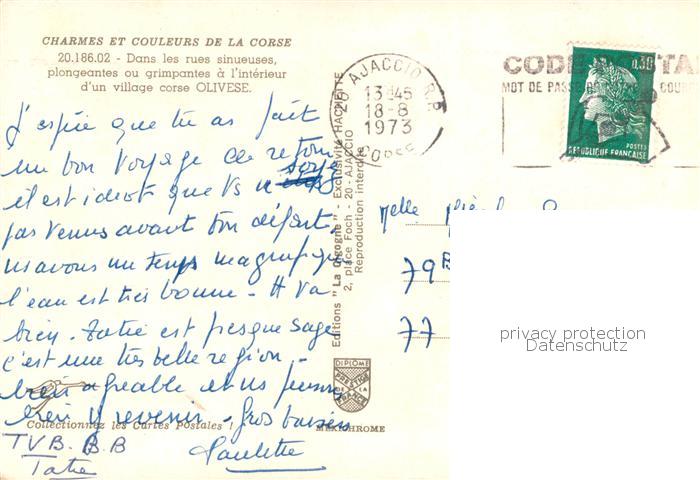 CHARMES ET COULEURS DE LA CORSE
20.186.02 - Dans les rues sinueuses,
plongeantes ou grimpantes à l'intérieur
d'un village corse OLIVESE.
J'espère que tu as fait
un bon voyage de retour
il est idiot que vs soyez
pas venus avant ton départ.
ns avons un temps magnifique
l'eau est très bonne - A va
bien. Tatie est presque sage
c'est une très belle région -
bien agréable et ns pensons
bien y revenir - Gros baisers
Collectionnez les Cartes Postales !
TVB. B.B
Tatie
Paulette
Editions "La Cigogne" - Exclusivité HACHETTE
2, place Foch - 20 - AJACCIO
Reproduction interdite
DIPLOME
PRESTIGE
DE LA
FRANCE
MEXICHROME
20 AJACCIO R.P.
13H45
18-8
1973
CORSE
CODE POSTAL
MOT DE PASSE
0,30
POSTES
REPUBLIQUE FRANÇAISE
Melle
79 B
77
privacy protection
Datenschutz